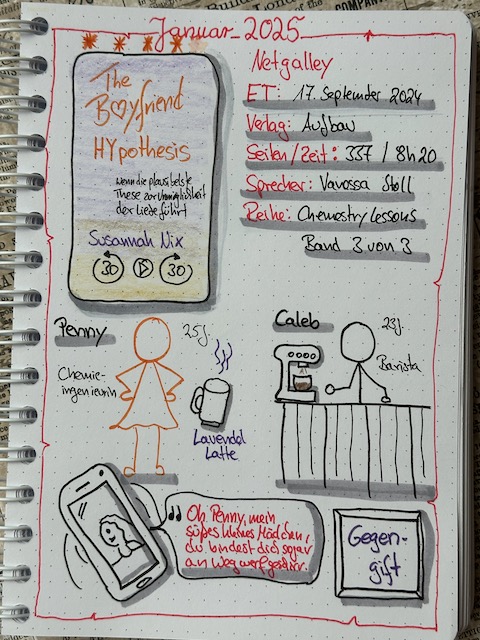 Januar 2025
The
Boyfriend
Hypothesis
Wenn die plausibelste
These zur Unmöglichkeit
der Liebe führt
Susannah Nix
30 30
Netgalley
ET: 17. September 2024
Verlag: Aufbau
Seiten/Zeit: 337 / 8h20
Sprecher: Vanessa Stoll
Reihe: Chemestry Lessons
Band 3 von 3
Penny
25J.
Chemie-
ingenieurin
Lavendel
Latte
Caleb
23J.
Barista
Oh Penny, mein
süßes kleines Mädchen,
du bindest dich sogar
an Wegwerfgeschirr.
Gegen-
gift
COMPANI